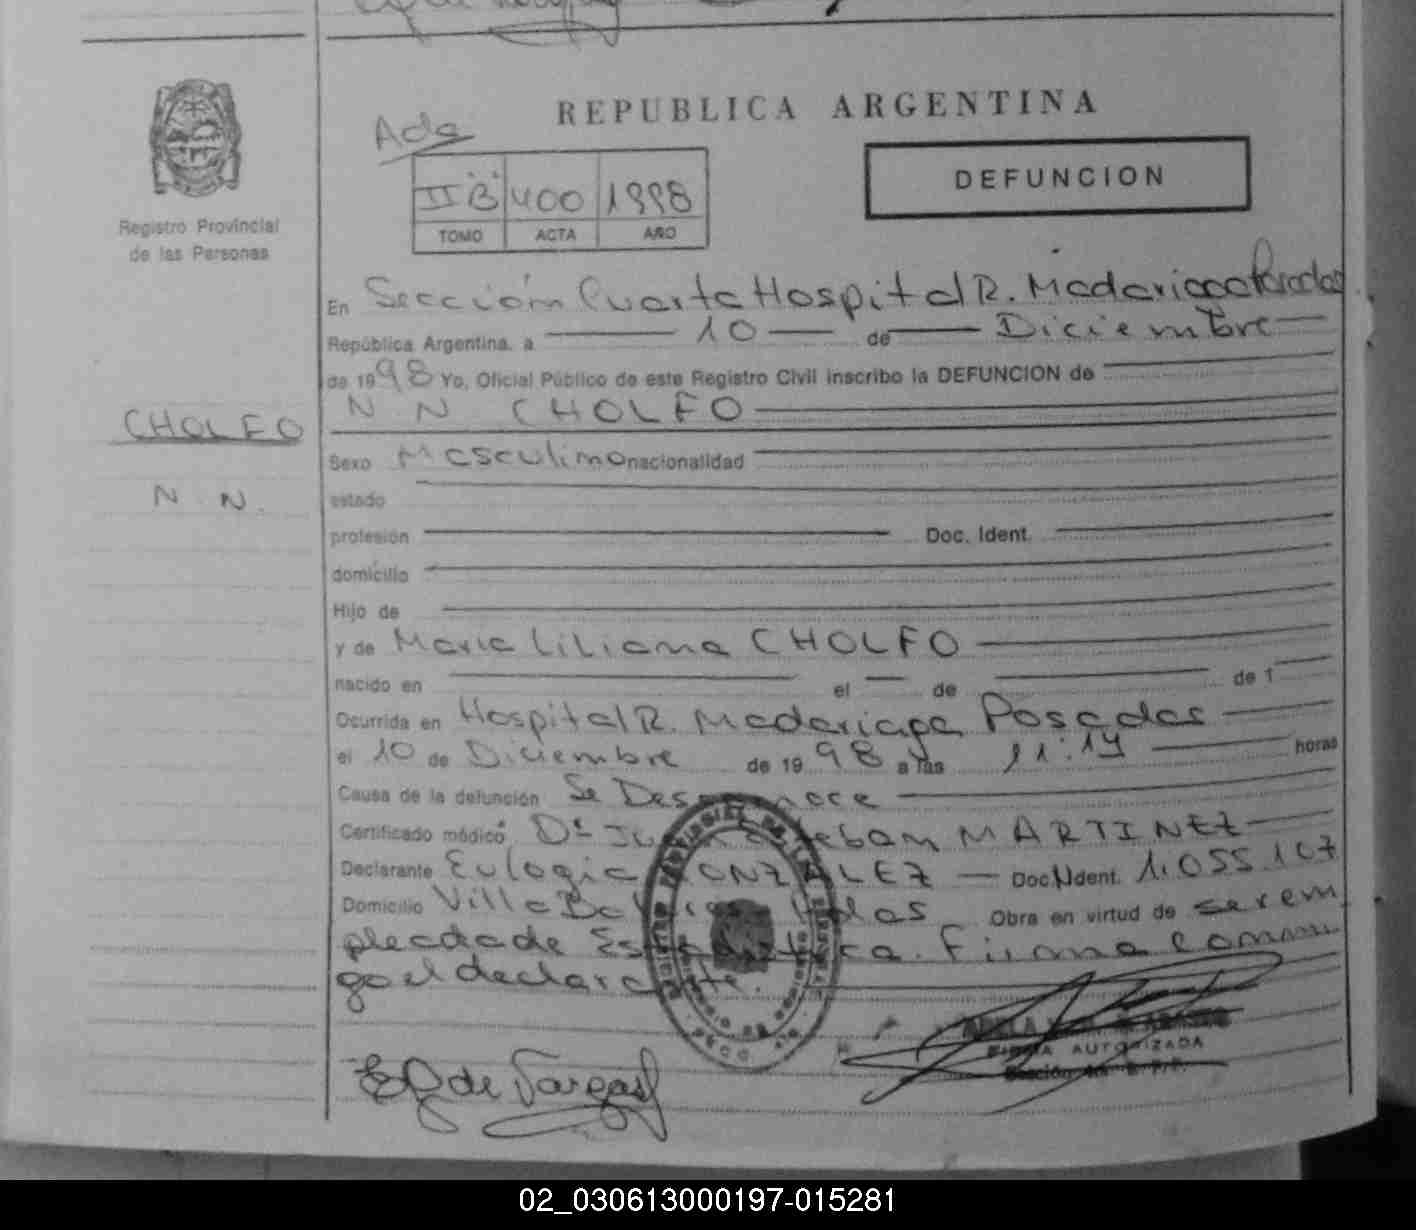 REPUBLICA ARGENTINA
Acta
II "B" 400 1998
TOMO ACTA AÑO
DEFUNCION
Registro Provincial
de las Personas
En Sección Cuarta Hospital R. Madariaga Posadas
República Argentina, a 10 de Diciembre
de 1998 Yo, Oficial Público de este Registro Civil inscribo la DEFUNCION de
N N CHOLFO
CHOLFO
N. N.
Sexo Masculino nacionalidad
estado
profesión Doc. Ident.
domicilio
Hijo de
y de Maria Liliana CHOLFO
nacido en el de de 1
Ocurrida en Hospital R. Madariaga Posadas
el 10 de Diciembre de 1998 a las 11:14 horas
Causa de la defunción Se Desconoce
Certificado médico Dr Juan Esteban MARTINEZ
Declarante Eulogia GONZALEZ Doc. Ident. 1.055.107
Domicilio Villa Posadas Obra en virtud de ser em
pleada de Estadística. Firma conmi
go el declarante.
E G de Vargas
FIRMA AUTORIZADA
02_030613000197-015281